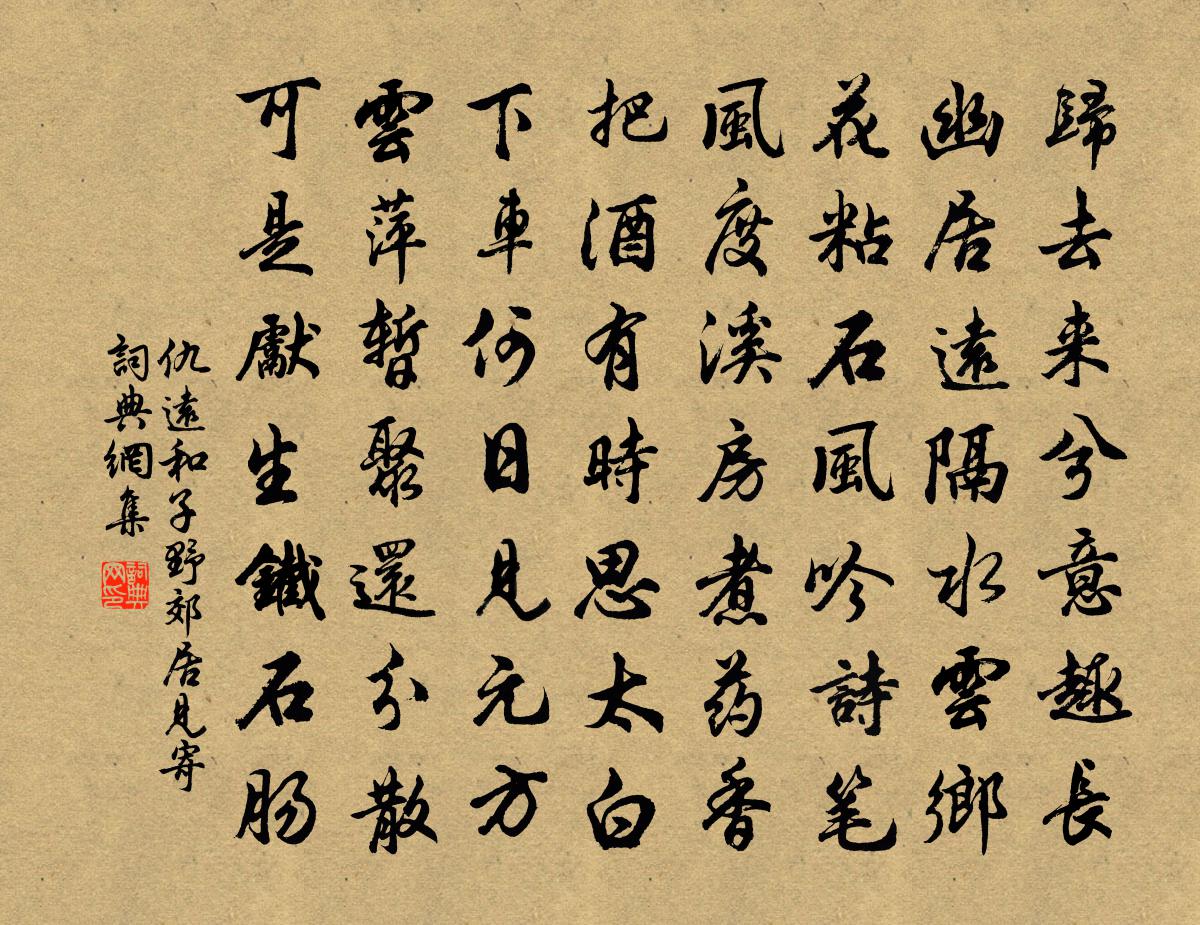 歸去来兮意趣長
幽居遠隔水雲鄉
花粘石風吟詩笔
風度溪房煮药香
把酒有時思太白
下車何日見元方
雲萍暫聚還分散
可是獻生鐵石肠
仇遠和子野郊居見寄
詞典網集
詞典网印